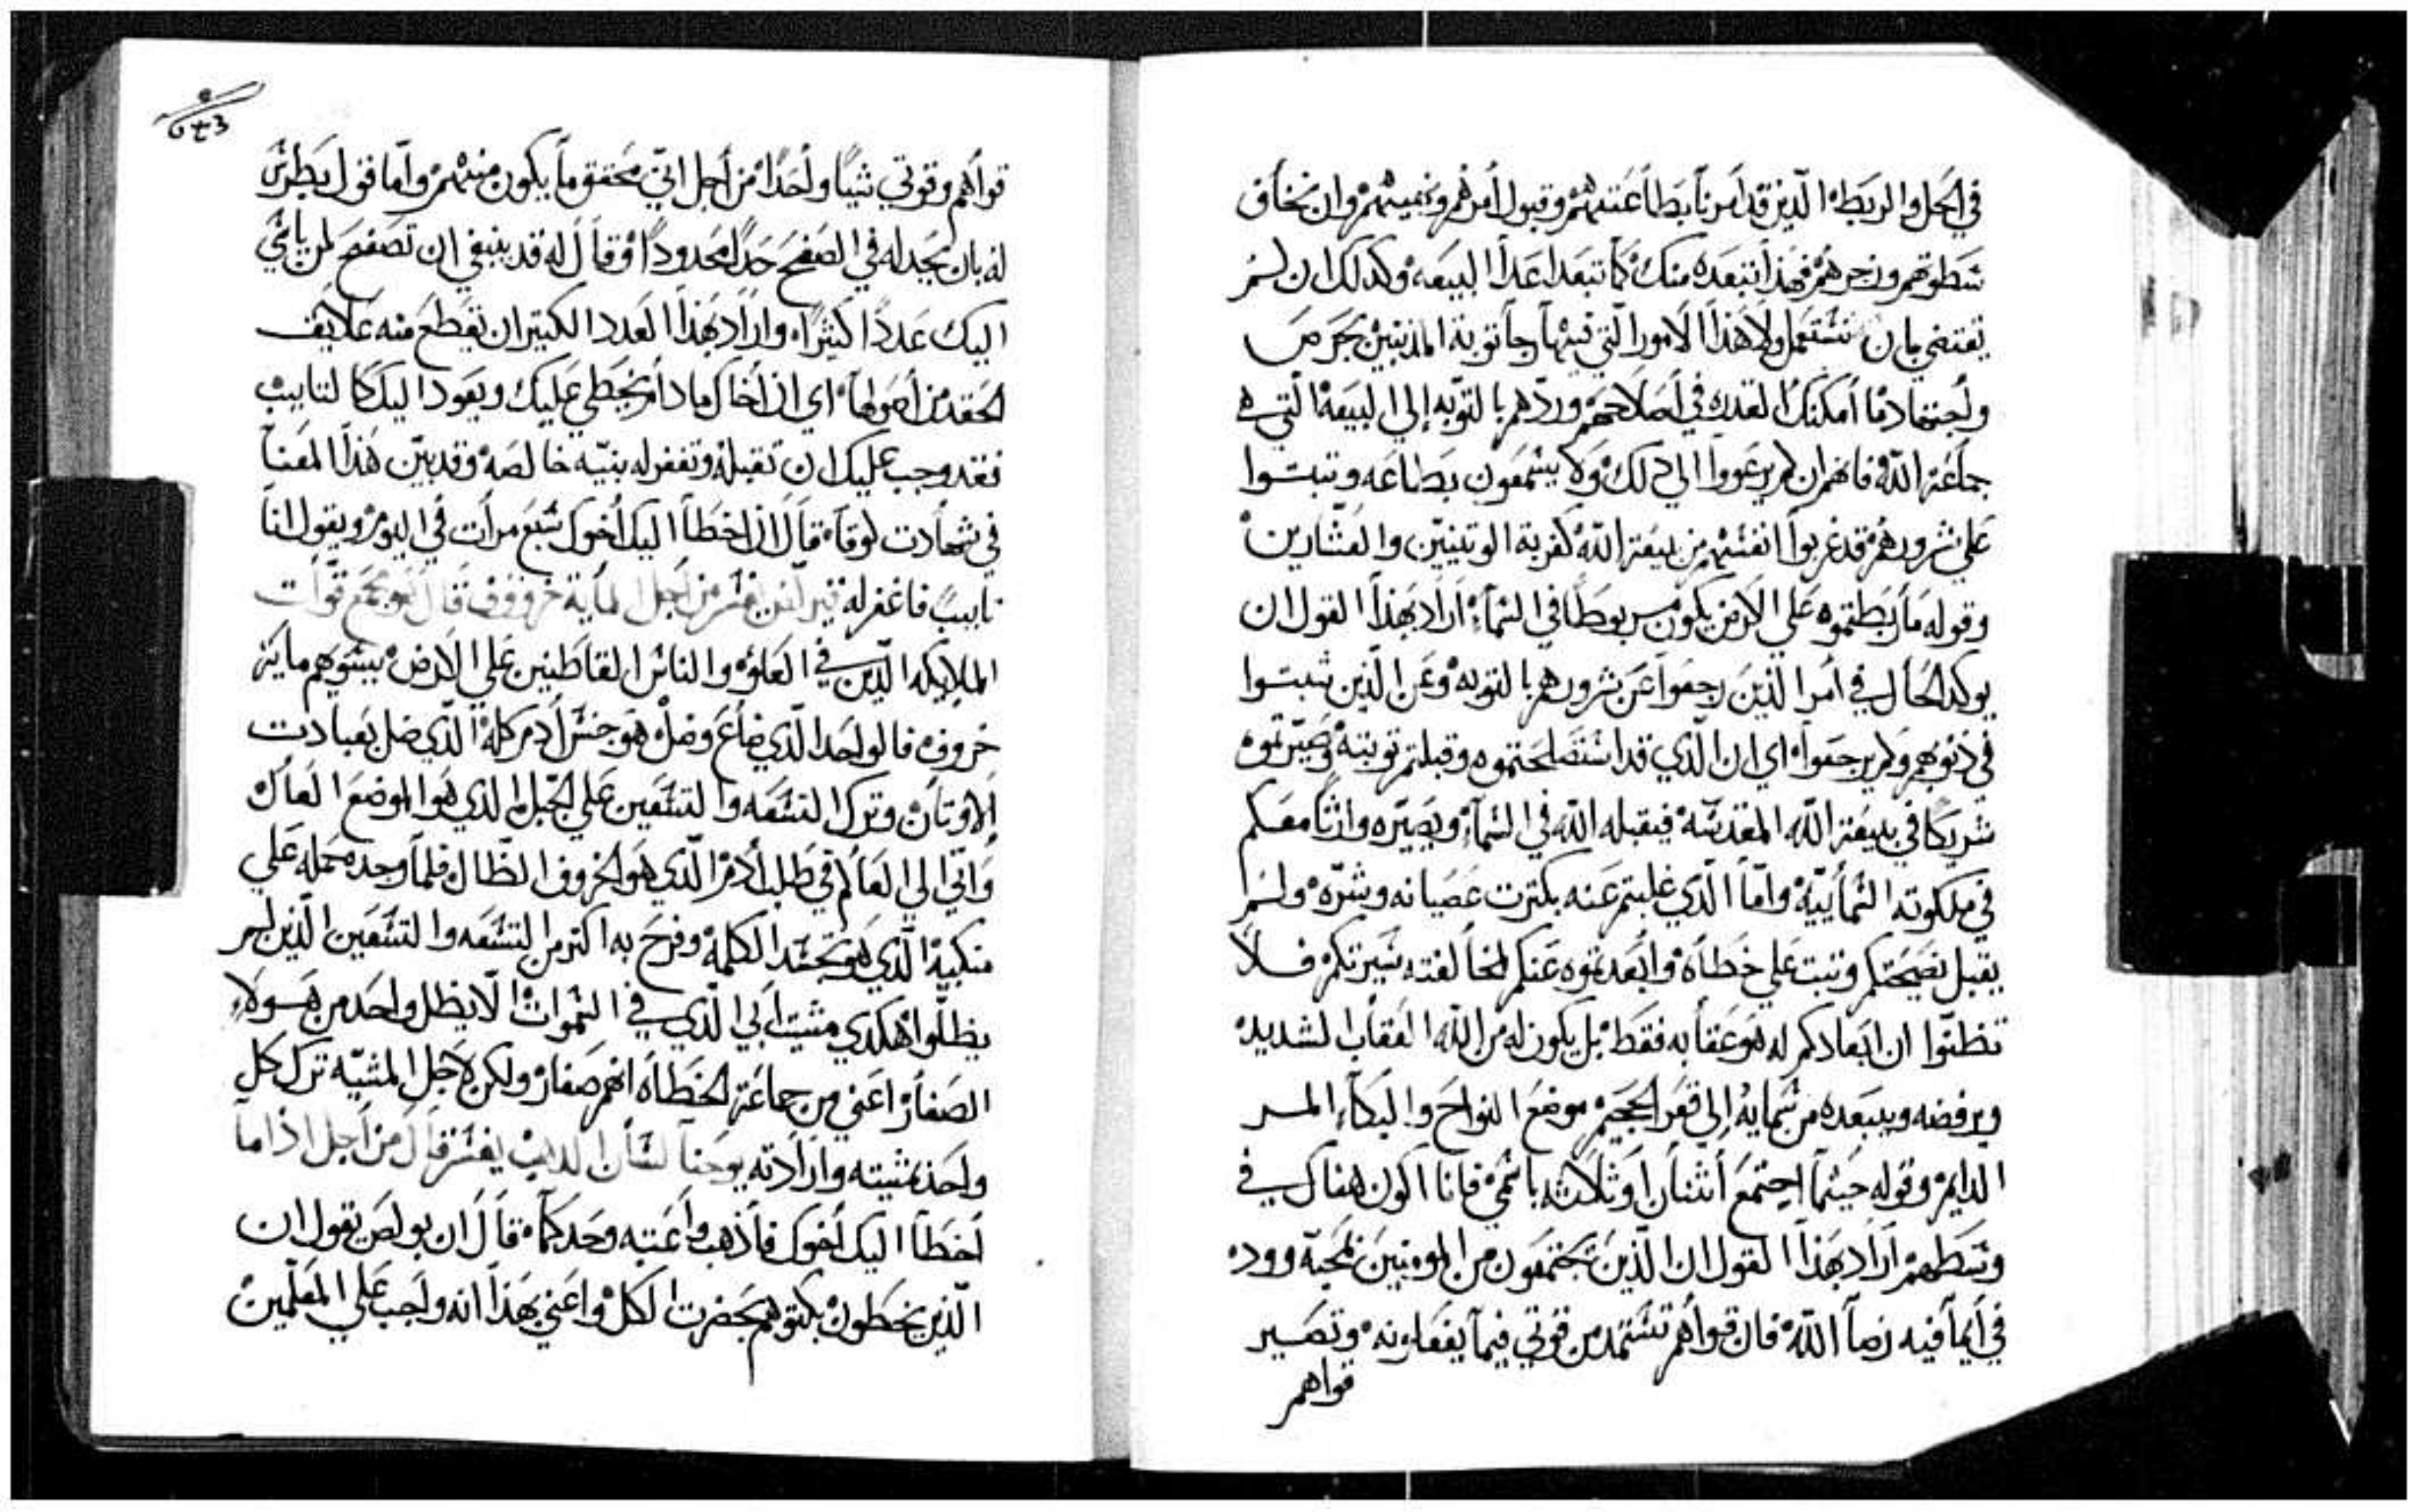 في الحل والربط الذين قد امرنا بطاعتهم وقبول امرهم ونهيهم وان نخاف
سطوتهم وزجرهم فهذا تبعده منك كما تبعد اعدا البيعه وكدلك ان لم
تقتضي بان تستعمل ولا هذا الامور التي فيها رجا توبة المذنبين بحرص
واجتهاد ما امكنك القدره في اصلاحهم وردهم بالتوبه إلى البيعة التي هي
جماعة الله فانهم ان لم يرعووا الى ذلك ولا يسمعون بطاعه وتبتوا
على شرورهم قد غربوا انفسهم من بيعة الله كغربة الوتنيين والعشارين
وقوله ما ربطتموه على الارض يكون مربوطا في السماء اراد بهذا القول ان
يوكد الحال في امر الذين رجعوا عن شرورهم بالتوبه وعن الذين تبتوا
في ذنوبهم ولم يرجعوا اي ان الذي قد استصلحتموه وقبلتم توبته وصيرتموه
شريكا في بيعة الله المقدسه فيقبله الله في السماء ويصيره وارثا معكم
في ملكوته السماييه واما الذي غلبتم عنه بكترت عصيانه وشره ولم
يقبل نصيحتكم وتبت على خطاه وابعدتموه عنكم لمخالفته سيرتكم فلا
تظنوا ان ابعادكم له هو عقابه فقط بل يكون له من الله العقاب الشديد
ويرفضه ويبعده من سمايه إلى قعر الجحيم موضع النواح والبكاء المر
الدايم وقوله حيثما اجتمع اثنان او ثلاثه باسمي فانا اكون هناك في
وسطهم اراد بهذا القول ان الذين يجتمعون من المومنين بمحبة وود
في ايما فيه رضا الله فان قواهم تستمد من قوتي فيما يفعلونه وتصير
قواهم
قواهم وقوتي شيا واحدا من اجل اني محقق ما يكون منهم واما قول بطرس
له بان يجد له في الصفح حدا محدودا وقال له قد ينبغي ان تصفح لمن ياسي
اليك عددا كثيرا واراد بهذا العدد الكبير ان تقطع منه علايق
الحقد من اصولها اي ان اخاك ما دام يخطي عليك ويعود اليك كالتايب
فقد وجب عليك ان تقبله وتغفر له بنيه خالصه وقد بين هذا المعنا
في شهادت لوقا قال ان اخطا اليك اخوك سبع مرات في اليوم ويقول انا
تايب فاغفر له قيرلس يفسر من اجل الماية خروف قال هو جمع قوات
الملايكه الذين في العلو والناس القاطنين على الارض بيسوهم ماية
خروف فالواحد الذي ضاع وضل هو جنس ادم كله الذي ضل بعبادت
الاوتان وترك التسعه والتسعين على الجبل الذي هو الموضع العال
واتى الى العالم في طلب ادم الذي هو الخروف الظال فلما وجده حمله على
منكبيه الذي هو تجسد الكلمة وفرح به اكتر من التسعه والتسعين الذين لم
يظلوا هكدي مشيت ابي الذي في السموات الا يظل واحد من هولاء
الصغار اعني من جماعة الخطاه انهم صغار ولكن لاجل المشيه ترك كل
واحد بمشيته وارادته يوحنا لسان الذهب يفسر قال من اجل اذا ما
اخطا اليك اخوك فاذهب واعتبه وحدكما قال ان بولص يقول ان
الذين يخطون بكتوهم بحضرت الكل واعني بهذا انه واجب على المعلمين